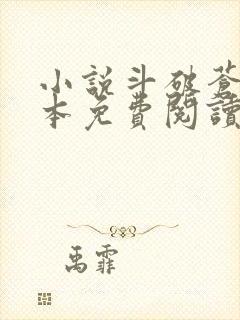 小說斗破蒼
本免費閱讀
禹霏